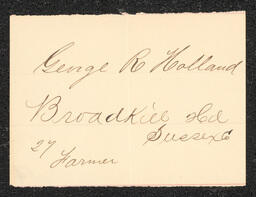 George R Holland
Broadkill Hd
Sussex Co
27
Farmer